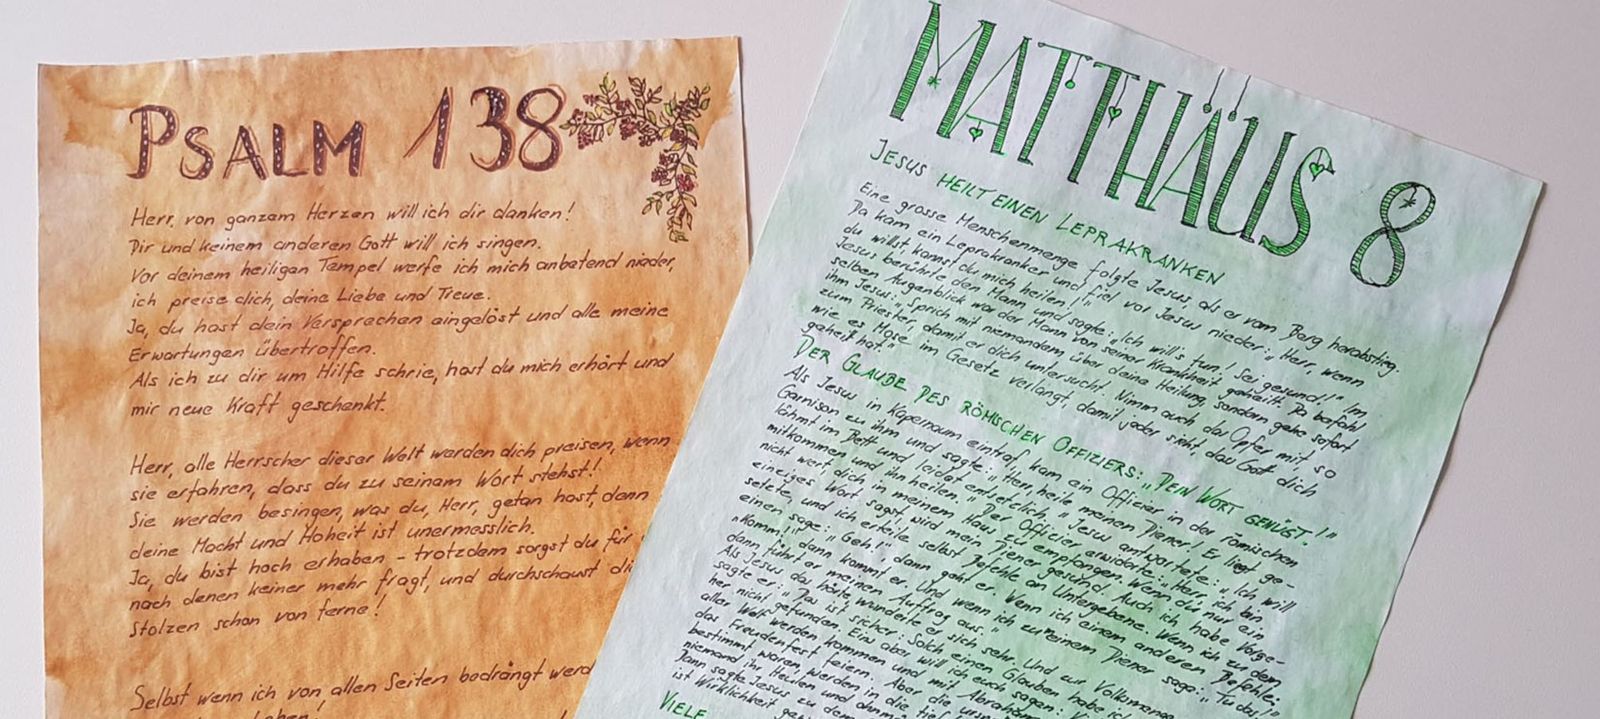 PSALM 138
Herr, von ganzem Herzen will ich dir danken!
Dir und keinem anderen Gott will ich singen.
Vor deinem heiligen Tempel werfe ich mich anbetend nieder,
ich preise dich, deine Liebe und Treue.
Ja, du hast dein Versprechen eingelöst und alle meine
Erwartungen übertroffen.
Als ich zu dir um Hilfe schrie, hast du mich erhört und
mir neue Kraft geschenkt.
Herr, alle Herrscher dieser Welt werden dich preisen, wenn
sie erfahren, dass du zu seinem Wort stehst!
Sie werden besingen, was du, Herr, getan hast, denn
deine Macht und Hoheit ist unermesslich.
Ja, du bist hoch erhaben - trotzdem sorgst du für
nach denen keiner mehr fragt, und durchschaust di
Stolzen schon von ferne!
Selbst wenn ich von allen Seiten bedrängt werd
MATTHÄUS 8
JESUS HEILT EINEN LEPRAKRANKEN
Eine grosse Menschenmenge folgte Jesus, als er vom Berg herabstieg.
Da kam ein Leprakranker und fiel vor Jesus nieder: „Herr, wenn
du willst, kannst du mich heilen!"
Jesus berührte den Mann und sagte: „Ich will's tun! Sei gesund!" Im
selben Augenblick war der Mann von seiner Krankheit geheilt. Da befahl
ihm Jesus: „Sprich mit niemandem über deine Heilung, sondern gehe sofort
zum Priester, damit er dich untersucht. Nimm auch das Opfer mit, so
wie es Mose im Gesetz verlangt, damit jeder sieht, das Gott dich
geheilt hat."
DER GLAUBE DES RÖMISCHEN OFFIZIERS: „DEIN WORT GENÜGT!"
Als Jesus in Kapernaum eintraf, kam ein Offizier der römischen
Garnison zu ihm und sagte: „Herr, heile meinen Diener! Er liegt ge-
lähmt im Bett und leidet entsetzlich." Jesus antwortete: „Ich will
mitkommen und ihn heilen." Der Offizier erwiderte: „Herr ich bin
nicht wert dich in meinem Haus zu empfangen. Wenn du nur ein
einziges Wort sagst, wird mein Diener gesund. Auch ich habe Vorge-
setzte, und ich erteile selbst Befehle an Untergebene. Wenn ich zu dem
einen sage: „Geh!", dann geht er. Wenn ich einem anderen Befehle:
„Komm!", dann kommt er. Und wenn ich zu meinem Diener sage: „Tu das!"
dann führt er meinen Auftrag aus."
Als Jesus das hörte, wunderte er sich sehr. Und zur Volksmenge
sagte er: „Das ist sicher: Solch einen Glauben habe ich
nicht gefunden. Eins aber will ich euch sagen:
aller Welt werden kommen und mit Abraham
das Freudenfest feiern. Aber die
bestimmt waren, werden in die
niemand ihr Heulen und
Dann sagte Jesus zu dem
ist Wirklichkeit
VIELE